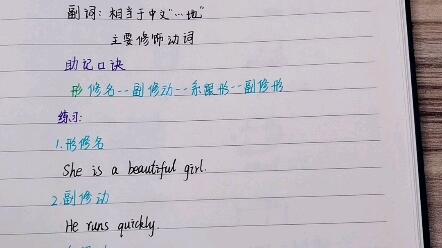 副词：相当于中文“…地”
主要修饰动词
助记口诀
形修名--副修动--系跟形--副修形
练习：
1.形修名
She is a beautiful girl.
2.副修动
He runs quickly.